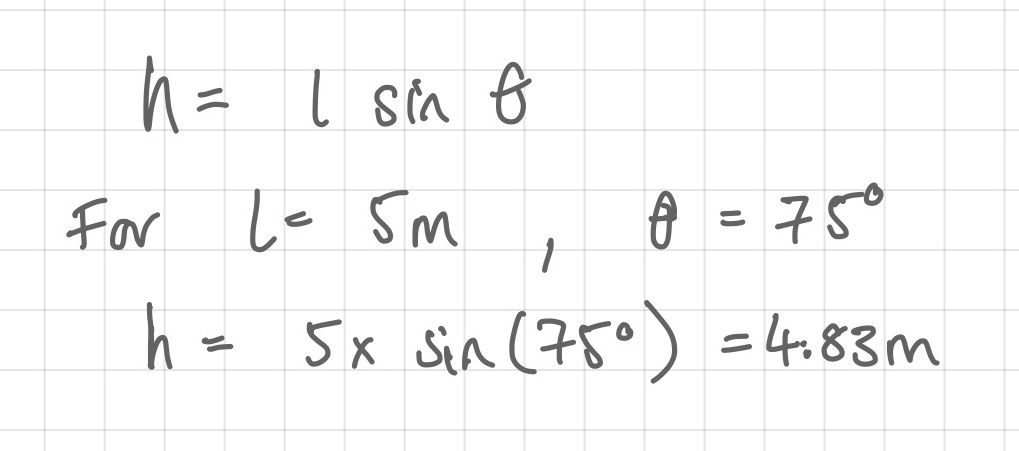 h = l sin θ
For l = 5m , θ = 75°
h = 5 x sin(75°) = 4.83m